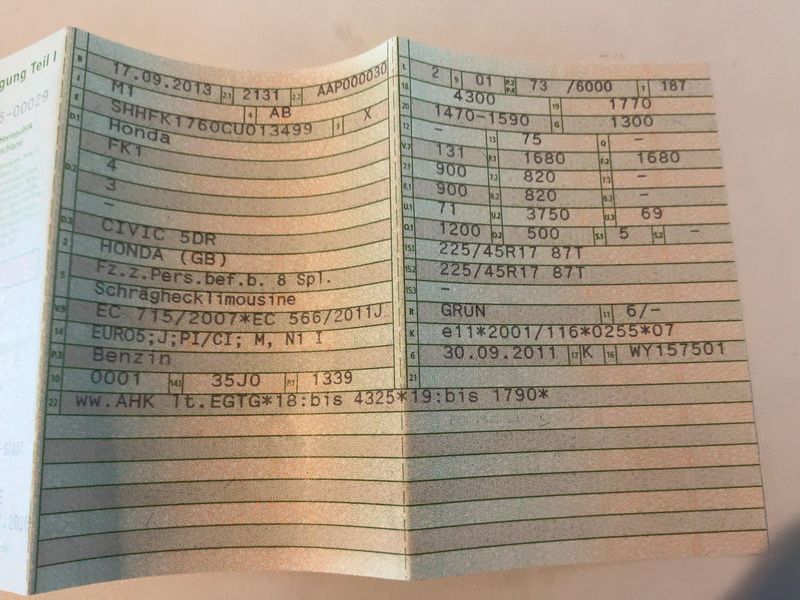 gung Teil I
-00029
B 17.09.2013 2.1 2131 2.2 AAP000030
J M1 4 AB
E SHHFK1760CU013499 3 X
D.1 Honda
FK1
D.2 4
3
–
D.3 CIVIC 5DR
2 HONDA (GB)
5 Fz.z.Pers.bef.b. 8 Spl.
Schräghecklimousine
V.9 EC 715/2007*EC 566/2011J
14 EURO5;J;PI/CI; M, N1 I
P.3 Benzin
10 0001 14.1 35J0 P.1 1339
22 ww.AHK lt.EGTG*18:bis 4325*19:bis 1790*
L 2 9 01 P.2 P.4 73 /6000 T 187
18 4300 19 1770
20 1470-1590 G 1300
12 – 13 75 Q –
V.7 131 F.1 1680 F.2 1680
7.1 900 7.2 820 7.3 –
8.1 900 8.2 820 8.3 –
U.1 71 U.2 3750 U.3 69
O.1 1200 O.2 500 S.1 5 S.2 –
15.1 225/45R17 87T
15.2 225/45R17 87T
15.3 –
R GRÜN 11 6/–
K e11*2001/116*0255*07
6 30.09.2011 17 K 16 WY157501
21